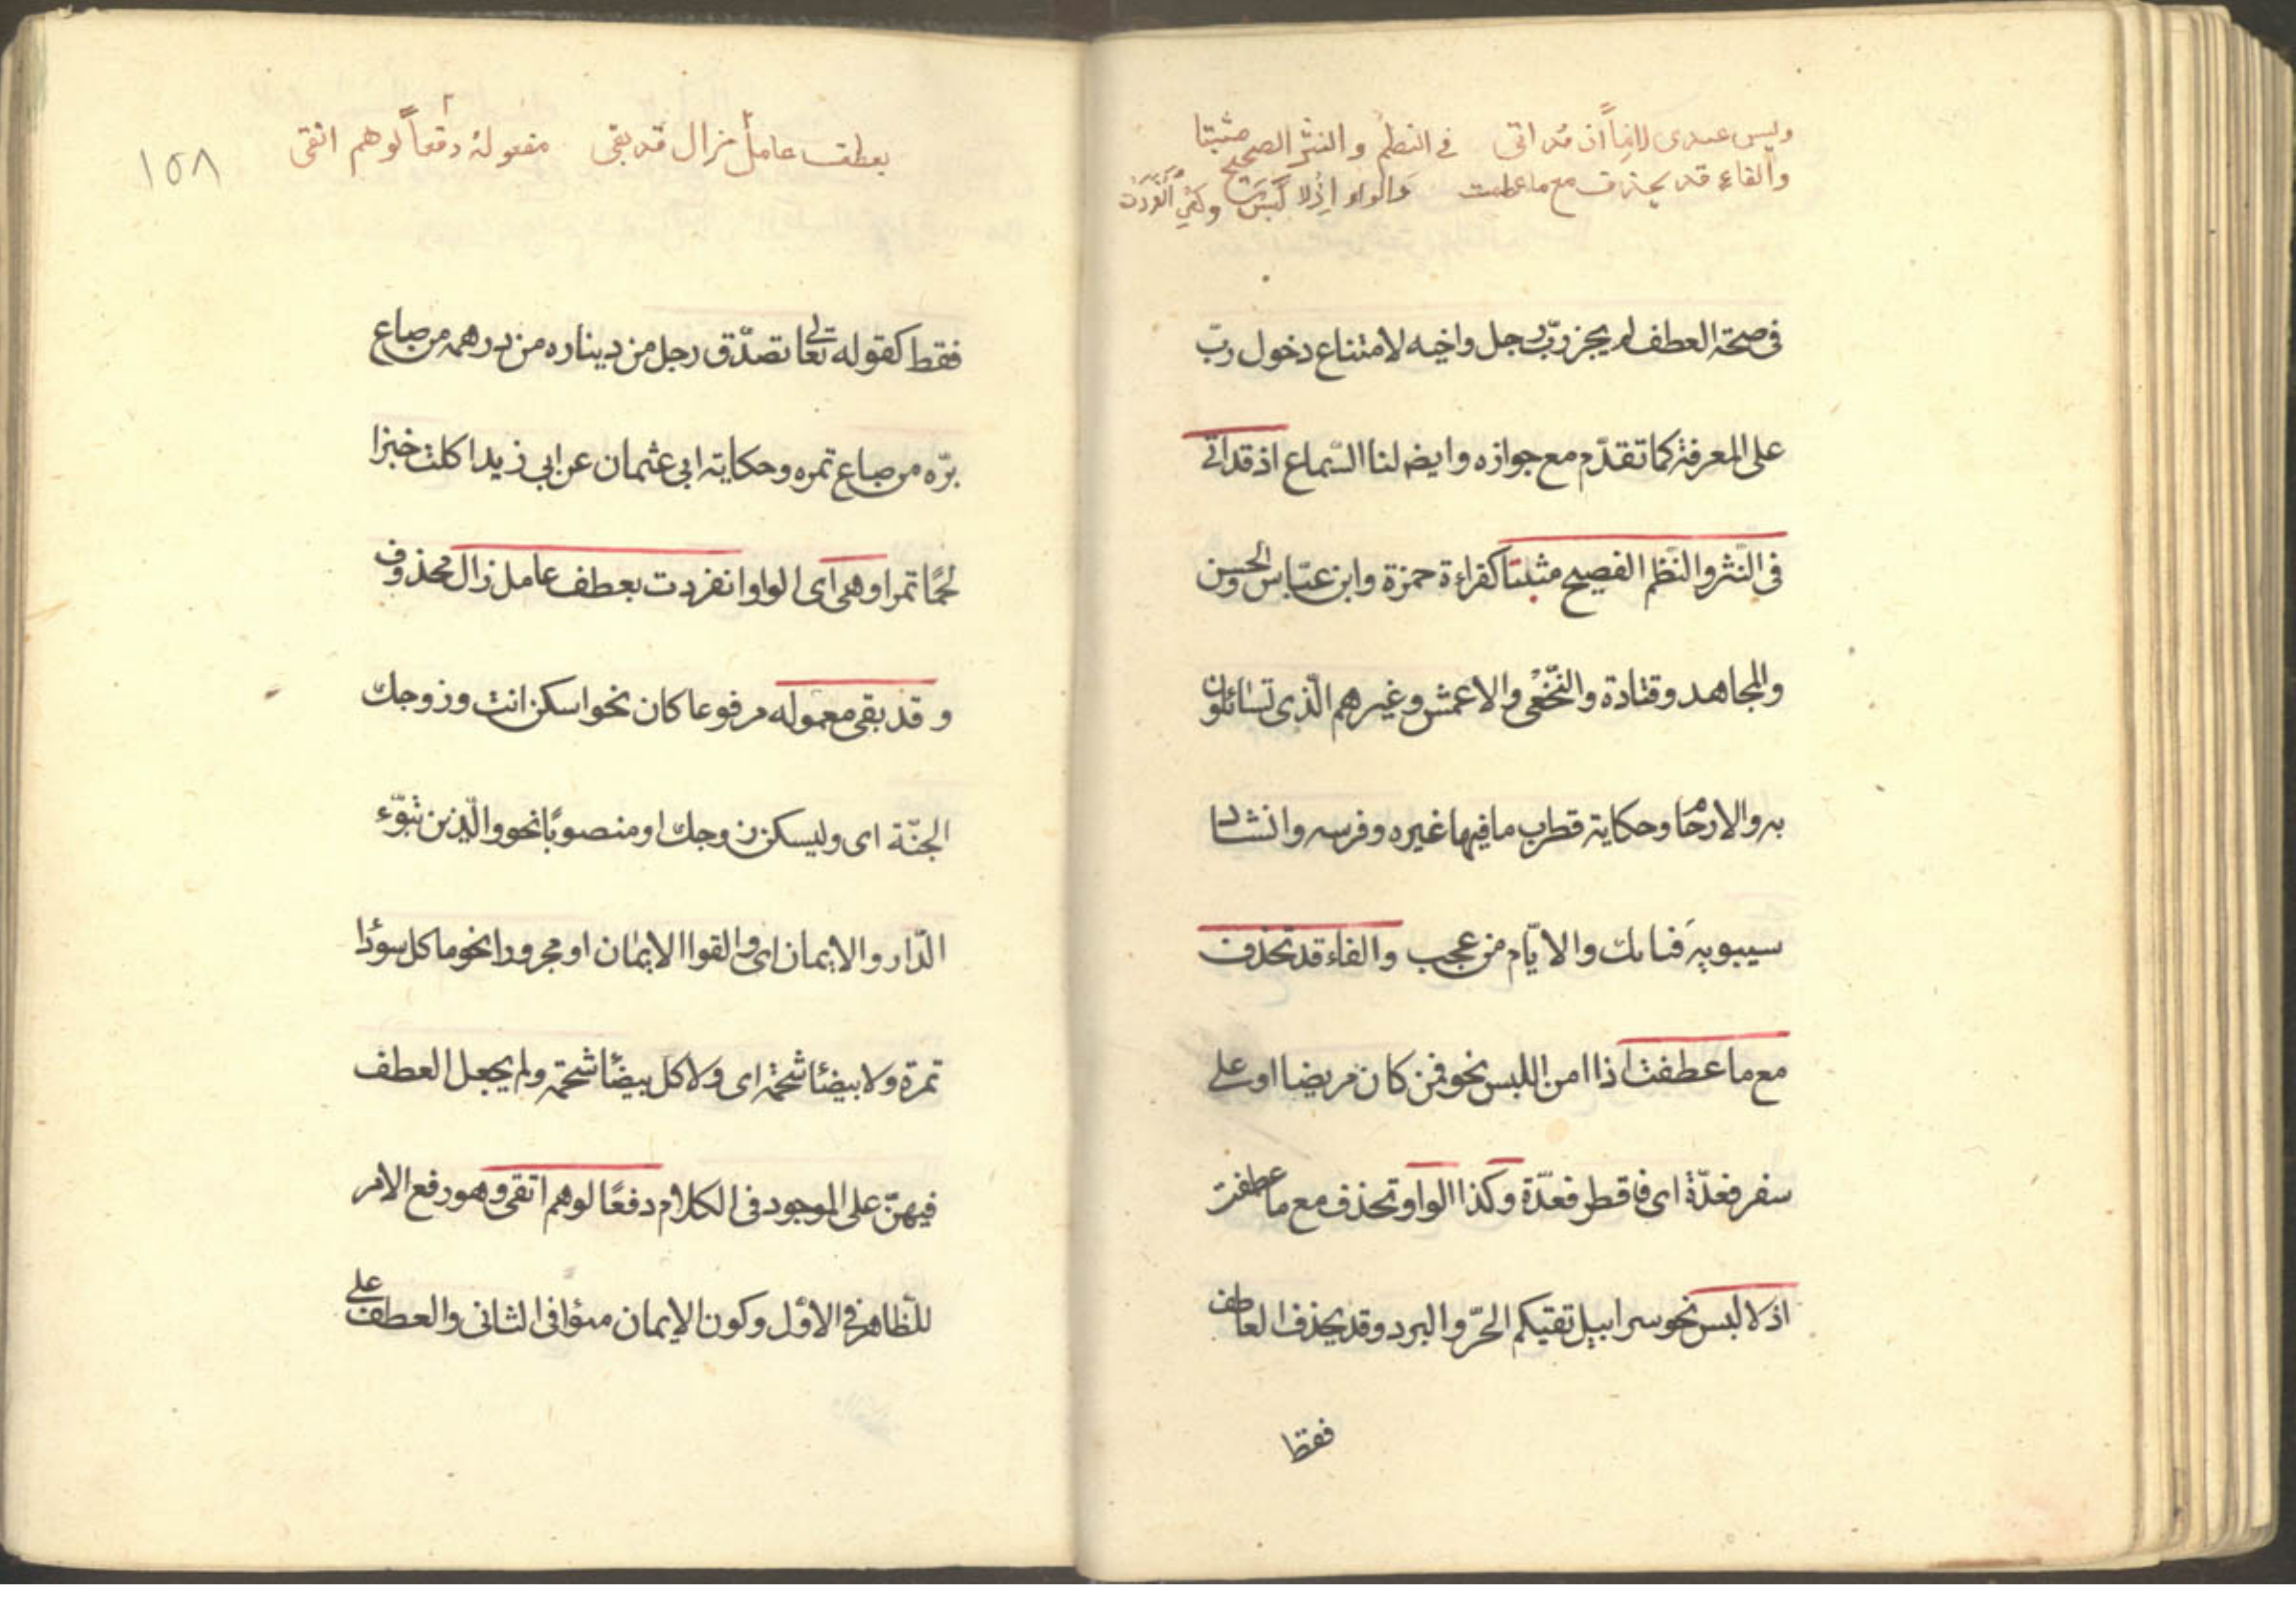 وليس عندى لازماً اذ قد اتى في النظم والنثر الصحيح مثبتا
والفاء قد يحذف مع ما عطفت والواو اذ لا لبس وهى انفردت
فى صحة العطف لم يجز ربّ رجل واخيه لامتناع دخول ربّ
على المعرفة كما تقدّم مع جوازه وايضه لنا السّماع اذ قد اتى
فى النّثر والنّظم الفصيح مثبتا كقراءة حمزة وابن عبّاس والحسن
والمجاهد وقتادة والنّخعى والاعمش وغيرهم الّذى تسائلون
به والارحام وحكاية قطرب ما فيها غيره وفرسه وانشاد
سيبويه فما بك والايّام من عجب والفاء قد تحذف
مع ما عطفت اذا امن اللبس نحو فمن كان مريضا او على
سفر فعدّة اى فافطر فعدّة وكذا الواو تحذف مع ما عطفت
اذ لا لبس نحو سرابيل تقيكم الحرّ والبرد وقد يحذف العاطف
فقط
١٥٨
بعطف عامل مزال قد بقى معموله دفعاً لوهم اتقى
فقط كقوله تعالى تصدّق رجل من ديناره من درهمه من صاع
برّه من صاع تمره وحكاية ابى عثمان عن ابى زيد اكلت خبزا
لحمًا تمرا وهى اى الواو انفردت بعطف عامل زال محذوف
و قد بقى معموله مرفوعا كان نحو اسكن انت وزوجك
الجنّة اى وليسكن زوجك او منصوبًا نحو والّذين تبوّء
الدّار والايمان اى والفوا الايمان او مجرورا نحو ما كل سودا
تمرة ولا بيضا شحمة اى ولا كل بيضا شحمة ولم يجعل العطف
فيهنّ على الموجود فى الكلام دفعًا لوهم اتقى وهو رفع الامر
للظّاهر فى الاوّل وكون الايمان مبوّا فى الثانى والعطف على